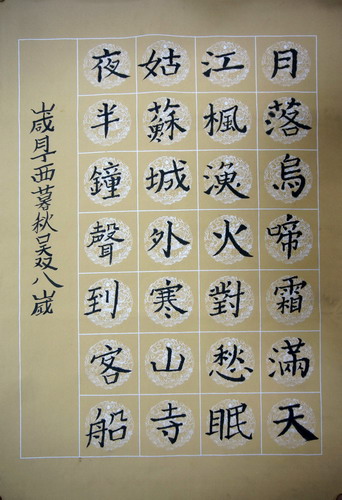 月落烏啼霜滿天
江楓漁火對愁眠
姑蘇城外寒山寺
夜半鐘聲到客船
歲月丁酉暮秋吴双八歲